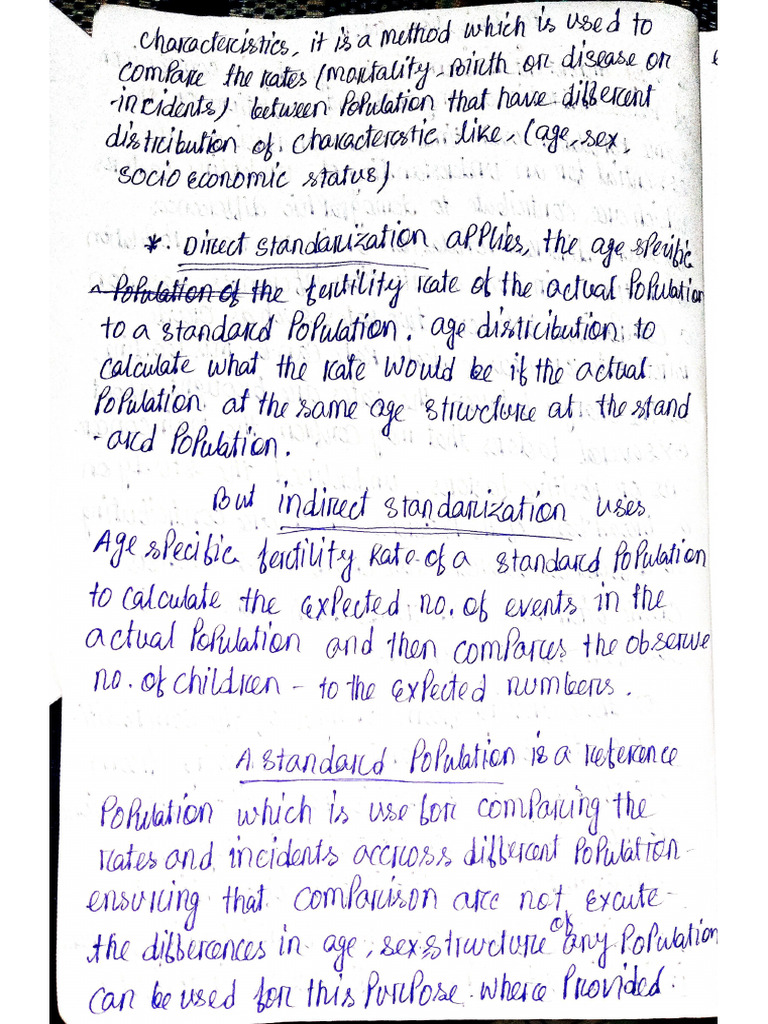 characteristics, it is a method which is used to
compare the rates (mortality, Birth or disease or
-incidents) between Population that have different
distribution of characterstic like, (age, sex,
socio economic status)
*. Direct standarization applies, the age specific
^ Population of the fertility rate of the actual Population
to a standard Population. age distribution to
calculate what the rate would be if the actual
Population at the same age structure at the stand
-ard Population.
But indirect standarization uses
Age specific fertility Rate of a standard Population
to calculate the expected no. of events in the
actual Population and then compares the observe
no. of children - to the expected numbers.
A standard Population is a reference
Population which is use for comparing the
rates and incidents accross different Population
ensuring that comparison are not excute
the differences in age, sex structure of any Population
can be used for this Purpose where Provided.